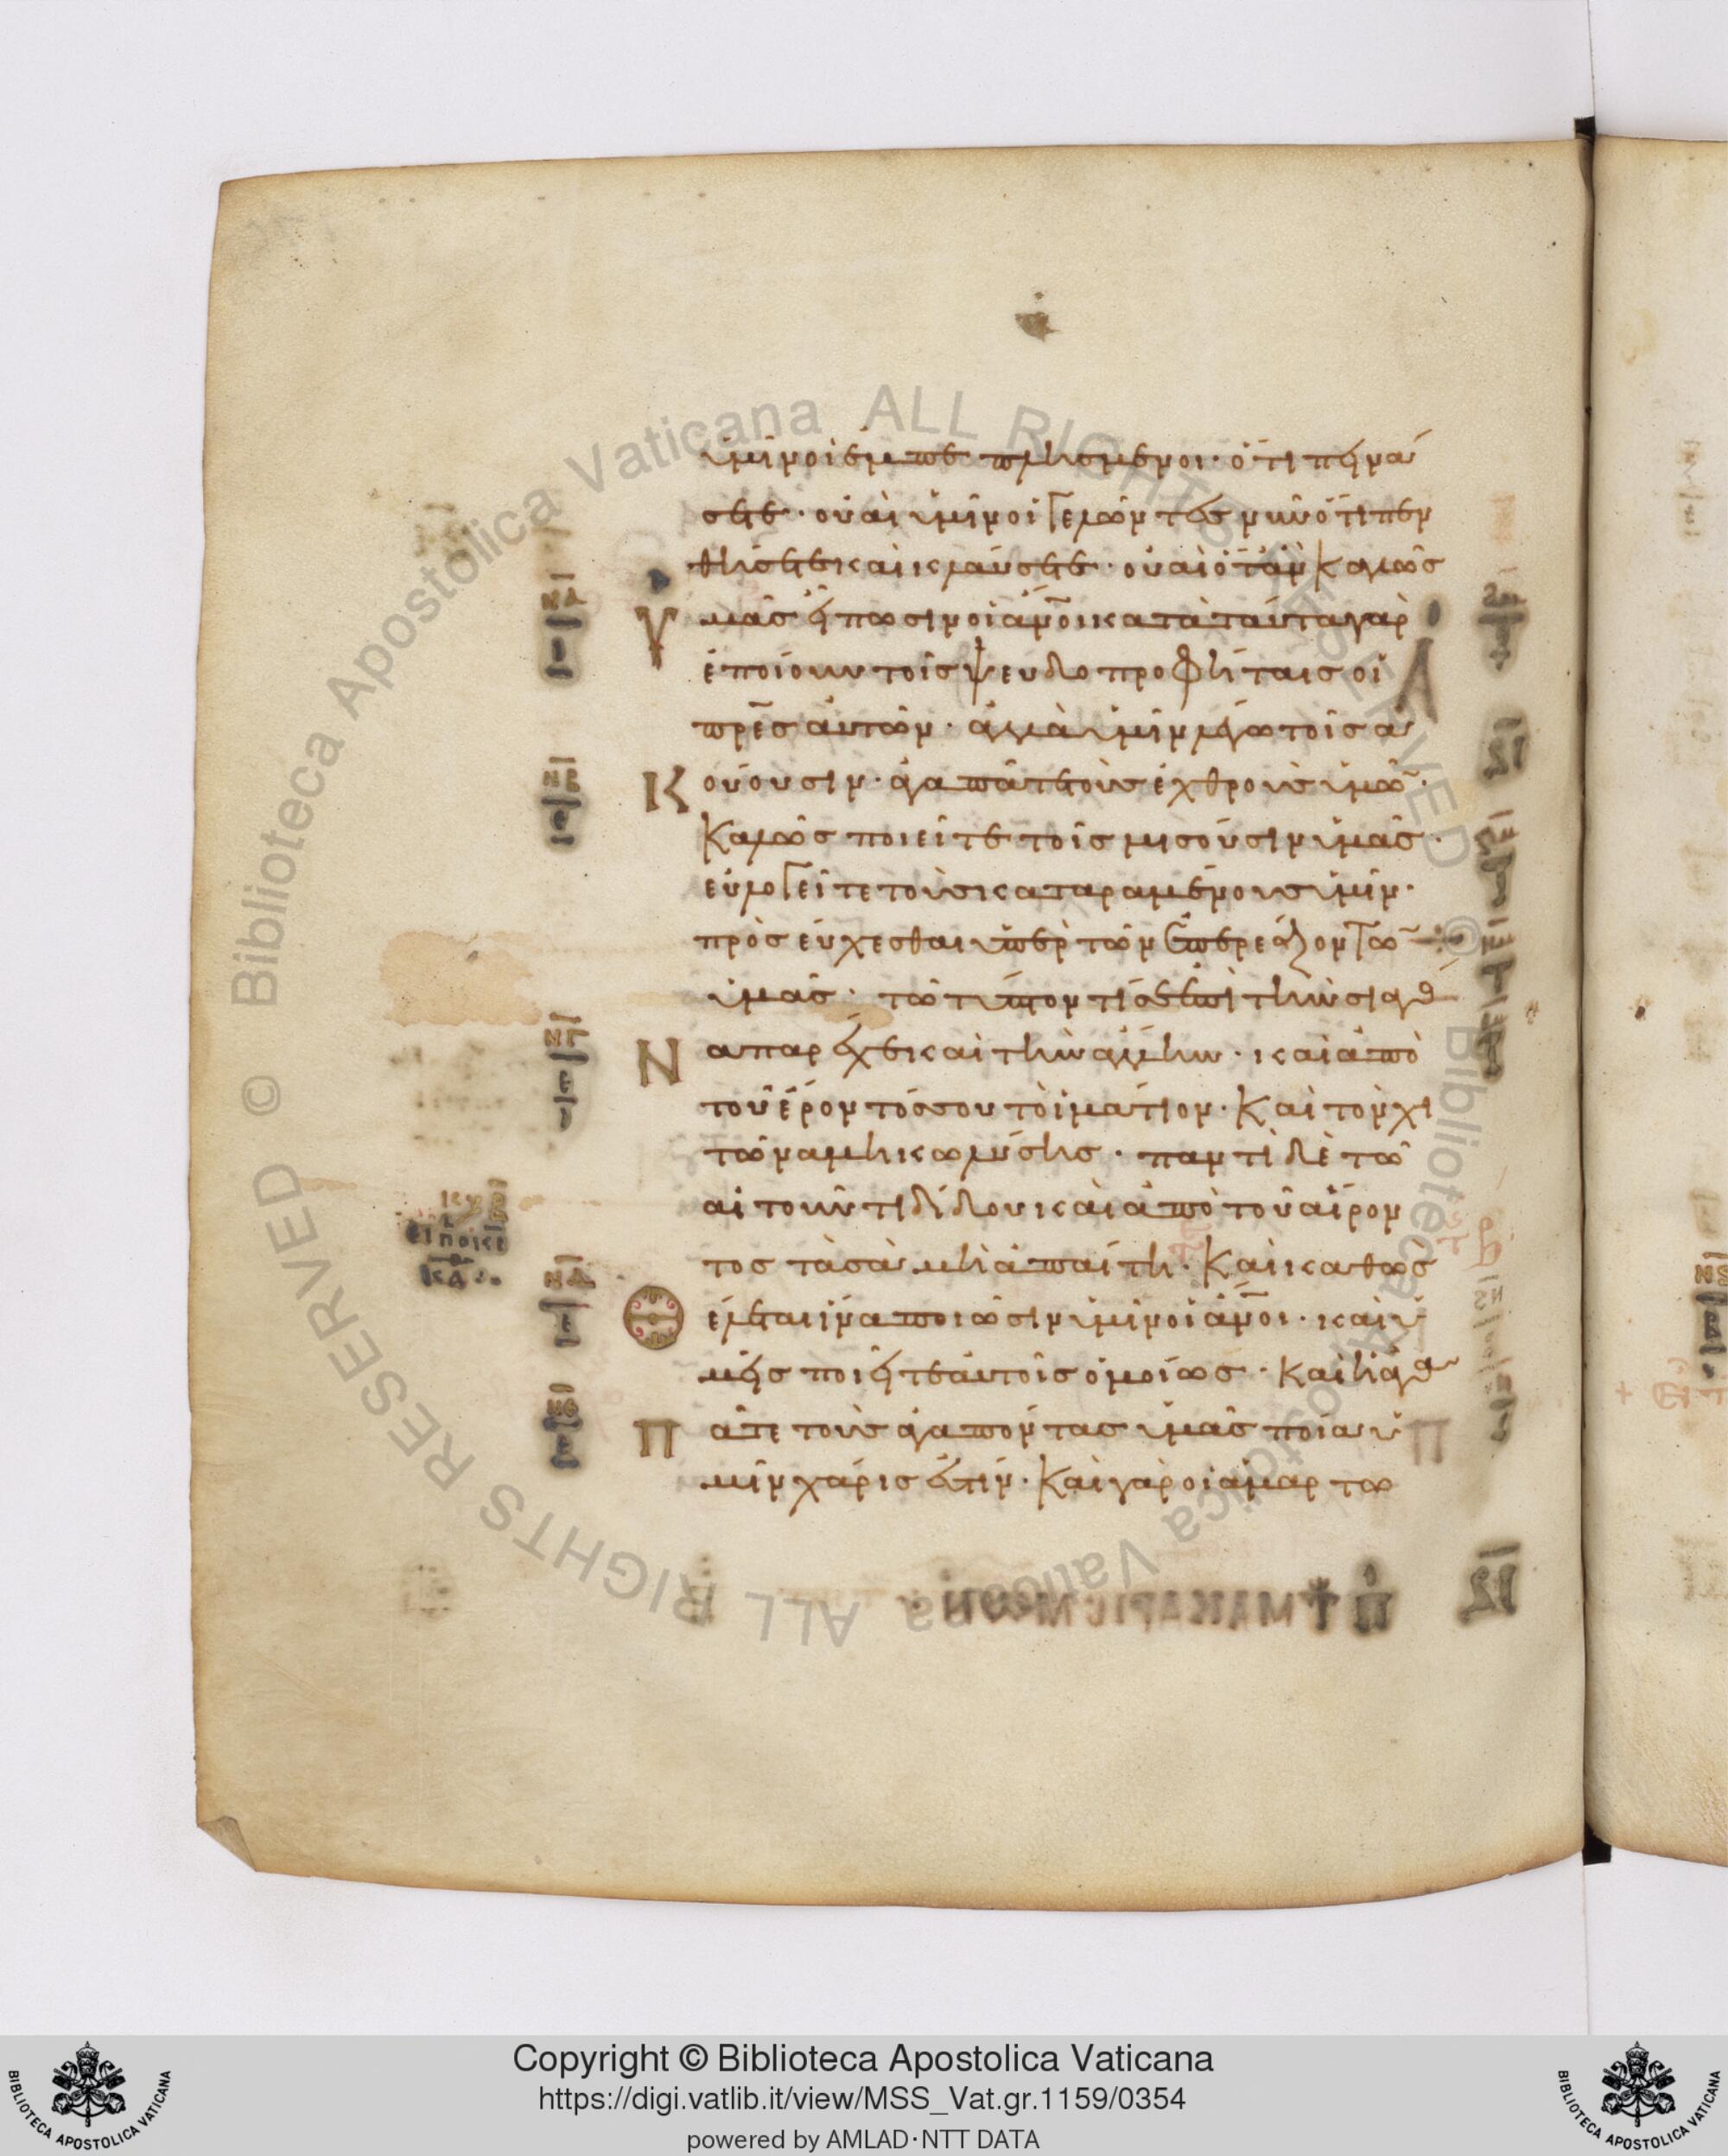 ὑμῖν οἱ ἐμπεπλησμένοι· ὅτι πεινά
σετε· οὐαὶ ὑμῖν οἱ γελῶντες νῦν ὅτι πεν
θήσετε καὶ κλαύσετε· οὐαὶ ὅταν καλῶς
Ὑμᾶς εἴπωσιν οἱ ἄνοι κατὰ ταῦτα γὰρ
ἐποίουν τοῖς ψευδοπροφήταις οἱ
πρες αὐτῶν· ἀλλὰ ὑμῖν λέγω τοῖς ἀ
Κούουσιν· ἀγαπᾶτε τοὺς ἐχθροὺς ὑμῶ·
καλῶς ποιεῖτε τοῖς μισοῦσιν ὑμᾶς·
εὐλογεῖτε τοὺς καταραμένους ὑμῖν·
προσεύχεσθαι ὑπὲρ τῶν ἐπερεαζόντω
ὑμᾶς· τῶ τύπτοντί σε ἐπὶ τὴν σιαγό
Να παρέχε καὶ τὴν ἄλλην· καὶ ἀπὸ
τοῦ ἔροντός σου τὸ ἱμάτιον· καὶ τὸν χι
τῶνα μὴ κωλύσης· παντὶ δὲ τῶ
αἰτοῦντι δίδου καὶ ἀπὸ τοῦ αἴρον
τος τὰ σὰ μὴ ἀπαίτη· καὶ καθὼς
Θέλεται ἵνα ποιῶσιν ὑμῖν οἱ ἄνοι· καὶ ὑ
μεῖς ποιεῖτε αὐτοῖς ὁμοίως· καὶ εἰ ἀγα
Πᾶτε τοὺς ἀγαπόντας ὑμᾶς ποία ὑ
μῖν χάρις ἐστίν· καὶ γὰρ οἱ ἁμαρτω
ΝΑ
ΝΒ
ΝΓ
ΝΔ
ΝΕ
Biblioteca Apostolica Vaticana ALL RIGHTS RESERVED ©
Copyright © Biblioteca Apostolica Vaticana
https://digi.vatlib.it/view/MSS_Vat.gr.1159/0354
powered by AMLAD·NTT DATA
BIBLIOTECA APOSTOLICA VATICANA
BIBLIOTECA APOSTOLICA VATICANA